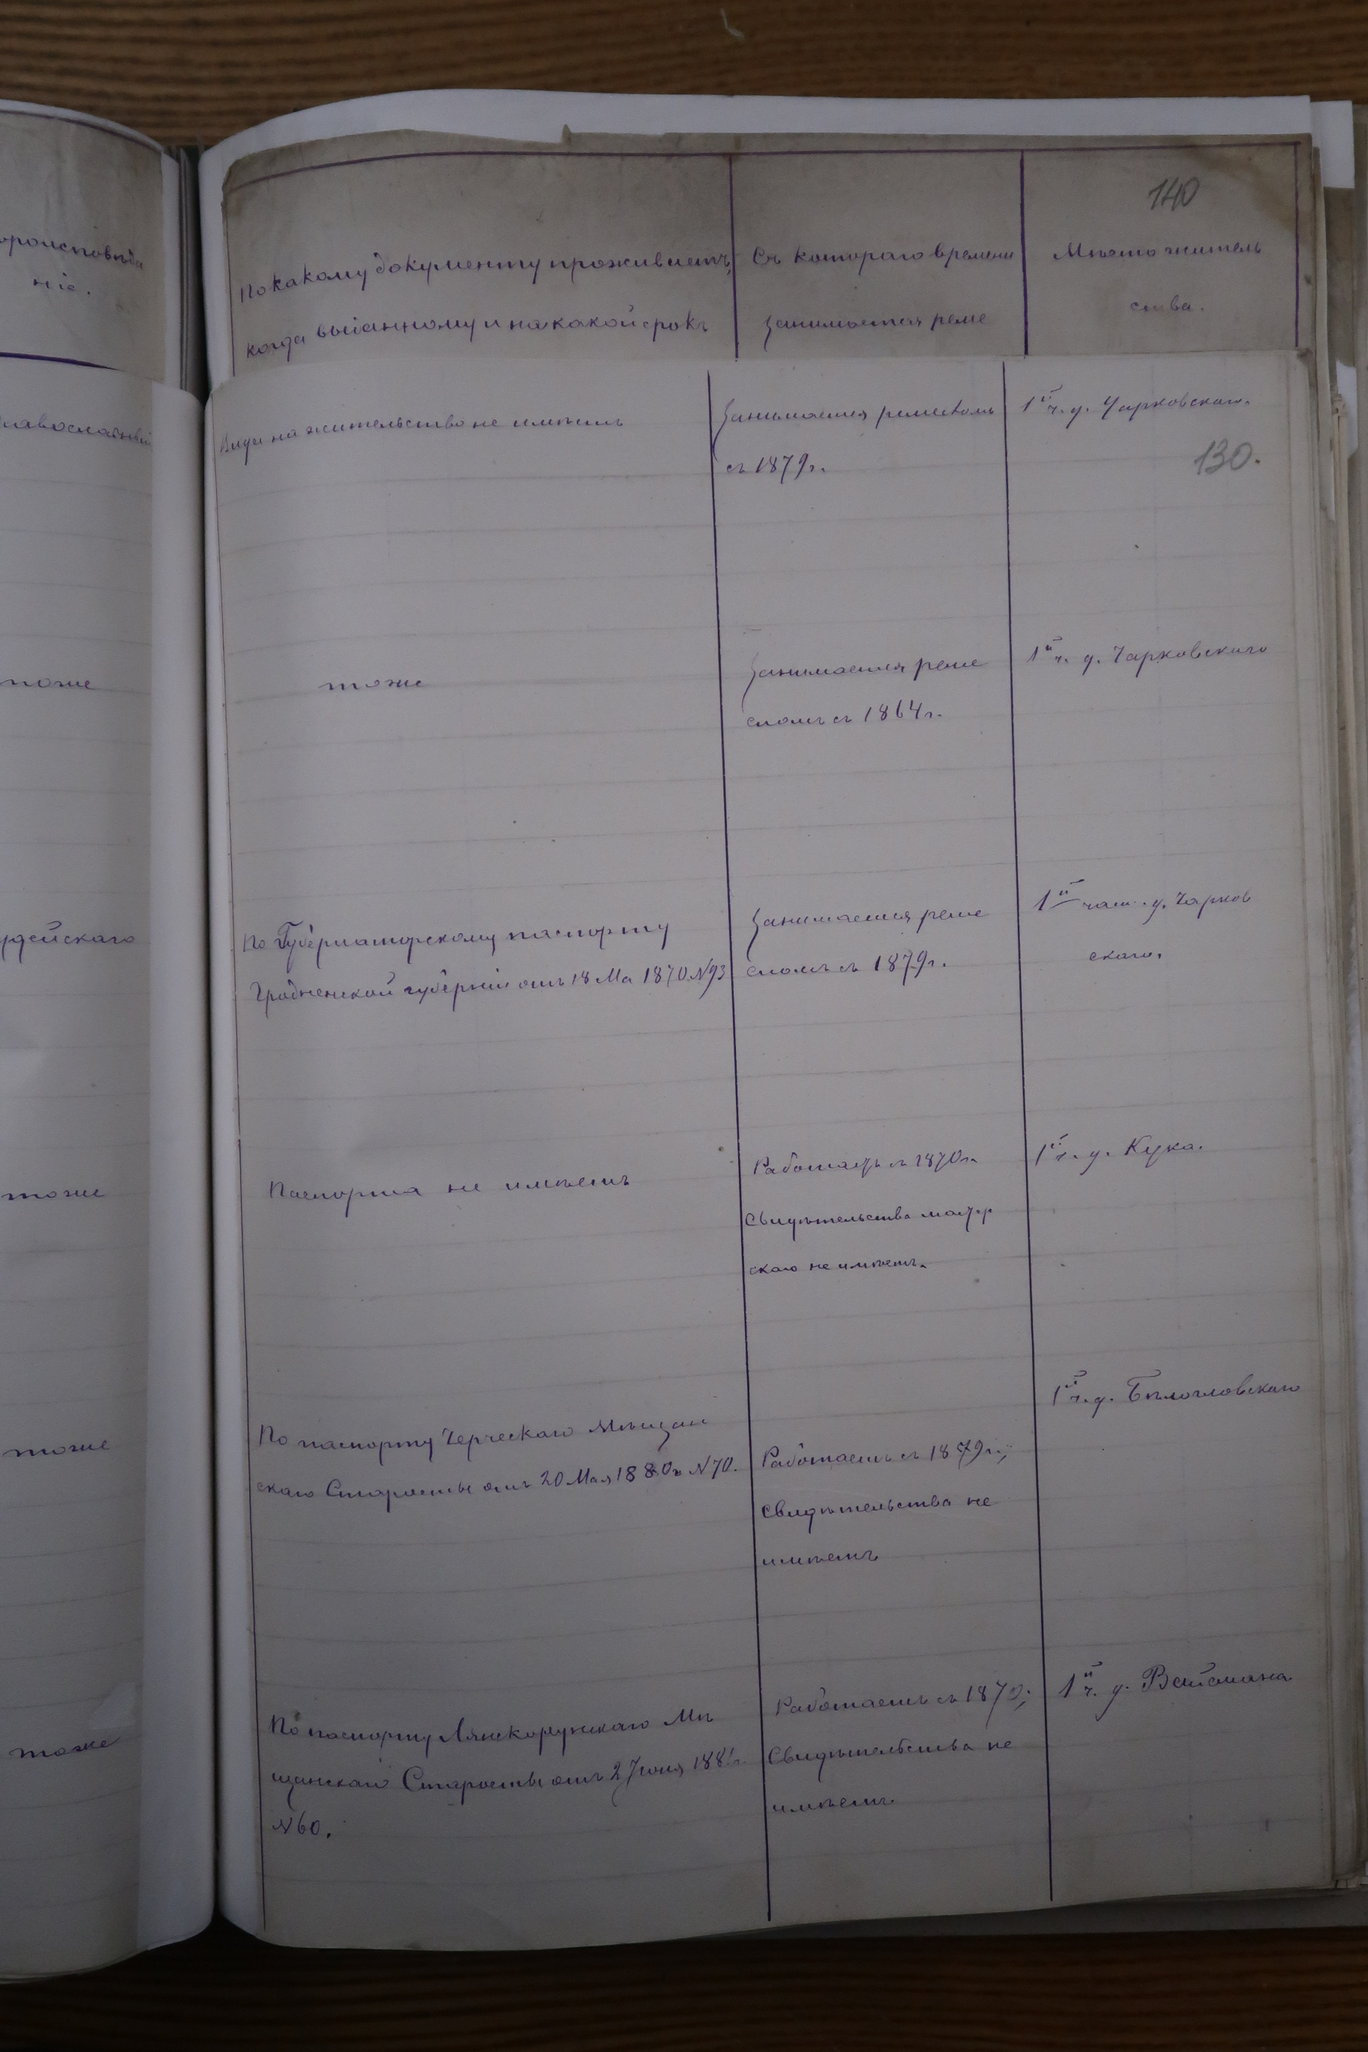 140
вроисповѣда
ніе.
По какому документу проживаетъ,
когда выданному и на какой срокъ
Съ котораго времени
занимается реме
Мѣсто житель
ства.
130.
лавославный
Вида на жительство не имѣетъ
Занимается ремесломъ
съ 1879 г.
1й ч. д. Чарковскаго.
тоже
тоже
Занимается реме
сломъ съ 1864 г.
1й ч. д. Чарковскаго
удейскаго
По Губернаторскому паспорту
Гродненской губерніи отъ 18 Ма 1870 N93
Занимается реме
сломъ съ 1879 г.
1й част. д. Чарков
скаго.
тоже
Паспорта не имѣетъ
Работаетъ съ 1870 г.
Свидѣтельства мастер
скаго не имѣетъ.
1й ч. д. Кука.
тоже
По паспорту Черческаго Мѣщан
скаго Старосты отъ 20 Мая 1880 г. N70.
Работаетъ съ 1879 г.;
свидѣтельства не
имѣетъ
1й ч. д. Бѣлогловскаго
тоже
По паспорту Лянскорунскаго Мѣ
щанскаго Старосты отъ 2 Іюня 1881 г.
N60.
Работаетъ съ 1870;
Свидѣтельства не
имѣетъ.
1й ч. д. Вайсмана